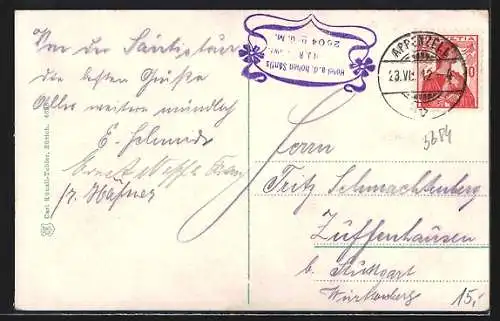 Von der Säntistour
die besten Grüße
Alles weitere mündlich
E. Schmidt
Ernst
Hotel a. d. hohen Säntis
2504 m ü. M.
APPENZELL
23.VII.12
HELVETIA
10
3654
Herrn
Fritz Schmachtenberg
Zuffenhausen
b. Stuttgart
Württenberg
15,-
Carl Künzli-Tobler, Zürich.